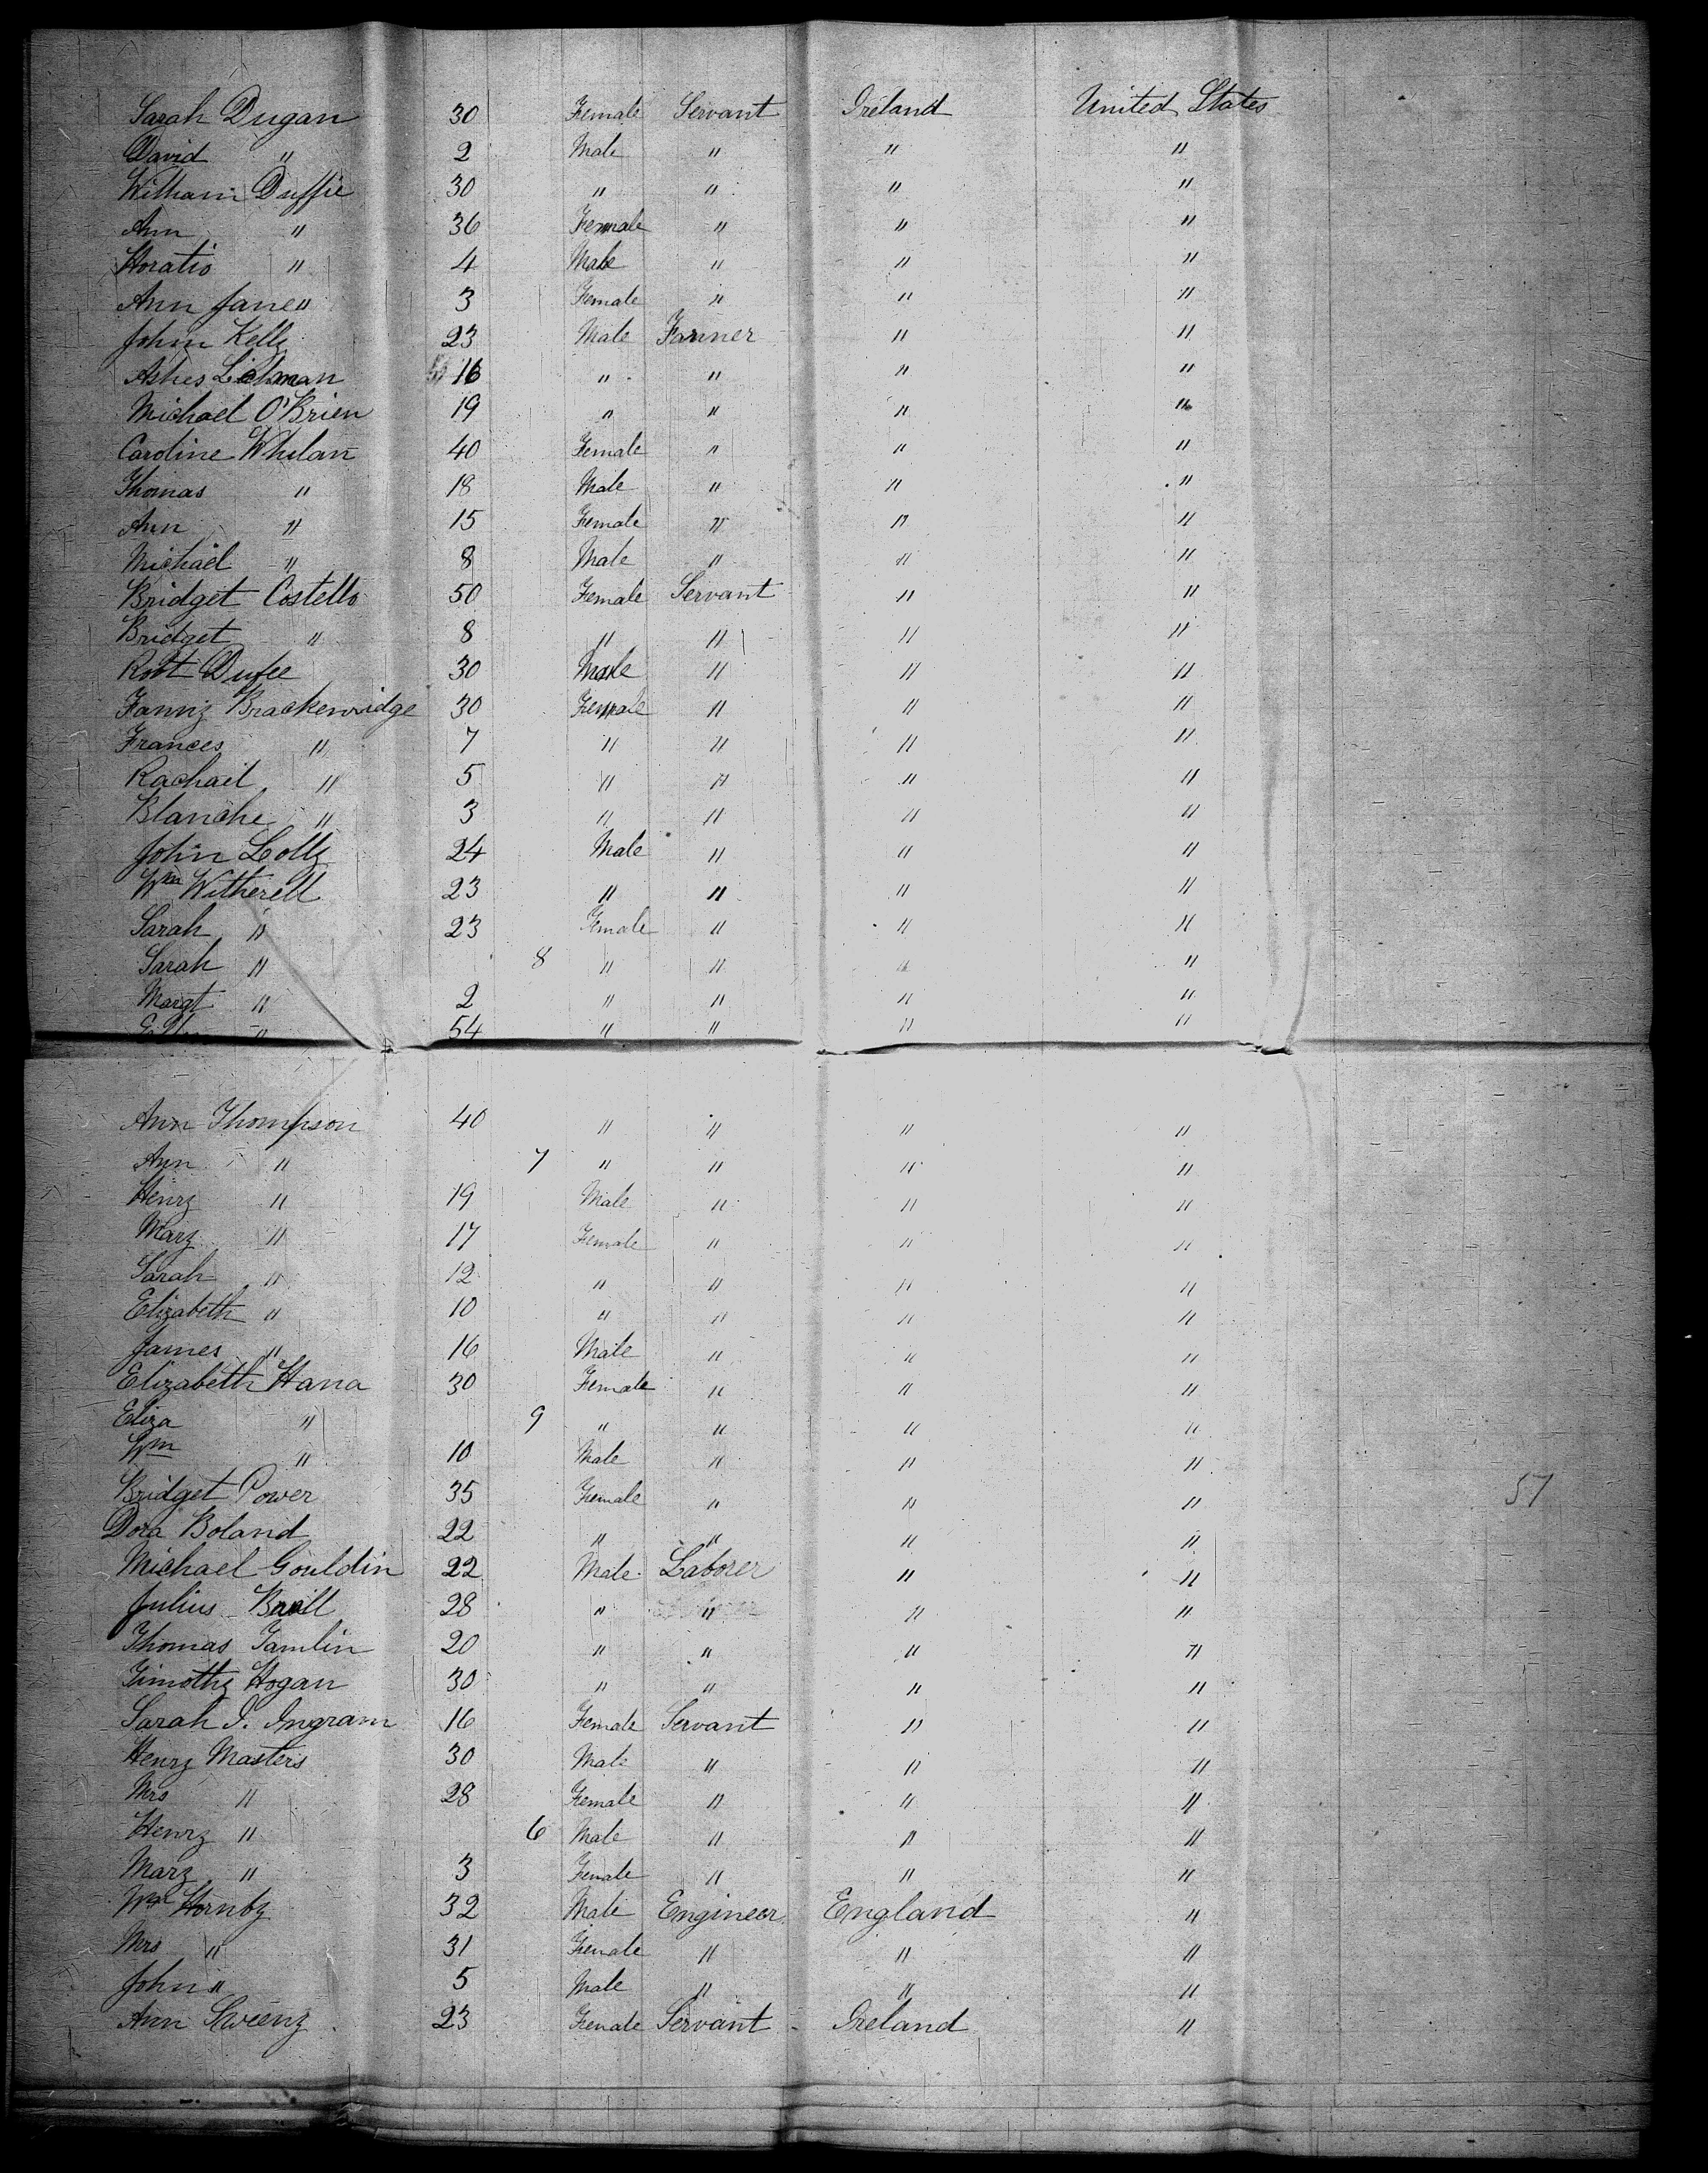 Sarah Dugan 30 Female Servant Ireland United States
David " 2 Male " " "
William Duffie 30 " " " "
Ann " 36 Female " " "
Horatio " 4 Male " " "
Ann Jane " 3 Female " " "
John Kelly 23 Male Farmer " "
16 " " " "
Michael O'Brien 19 " " " "
Caroline Whelan 40 Female " " "
Thomas " 18 Male " " "
Ann " 15 Female " " "
Michael " 8 Male " " "
Bridget Costello 50 Female Servant " "
Bridget " 8 " " " "
Robt Dufee 30 Male " " "
Fanny Brackenridge 30 Female " " "
Frances " 7 " " " "
Rachail " 5 " " " "
Blanche " 3 " " " "
John Lolly 24 Male " " "
Wm Witherell 23 " " " "
Sarah " 23 Female " " "
Sarah " 8 " " " "
Margt " 2 " " " "
" 54 " " " "
Ann Thompson 40 " " " "
Ann " 7 " " " "
Henry " 19 Male " " "
Mary " 17 Female " " "
Sarah " 12 " " " "
Elizabeth " 10 " " " "
James " 16 Male " " "
Elizabeth Hana 30 Female " " "
Eliza " 9 " " " "
Wm " 10 Male " " "
Bridget Power 35 Female " " "
57
Dora Boland 22 " " " "
Michael Gouldin 22 Male Laborer " "
Julius 28 " " " "
Thomas Tamlin 20 " " " "
Timothy Hogan 30 " " " "
Sarah J. Ingram 16 Female Servant " "
Henry Masters 30 Male " " "
Mrs " 28 Female " " "
Henry " 6 Male " " "
Mary " 3 Female " " "
Wm Hornby 32 Male Engineer England "
Mrs " 31 Female " " "
John " 5 Male " " "
Ann Sweeny 23 Female Servant Ireland "